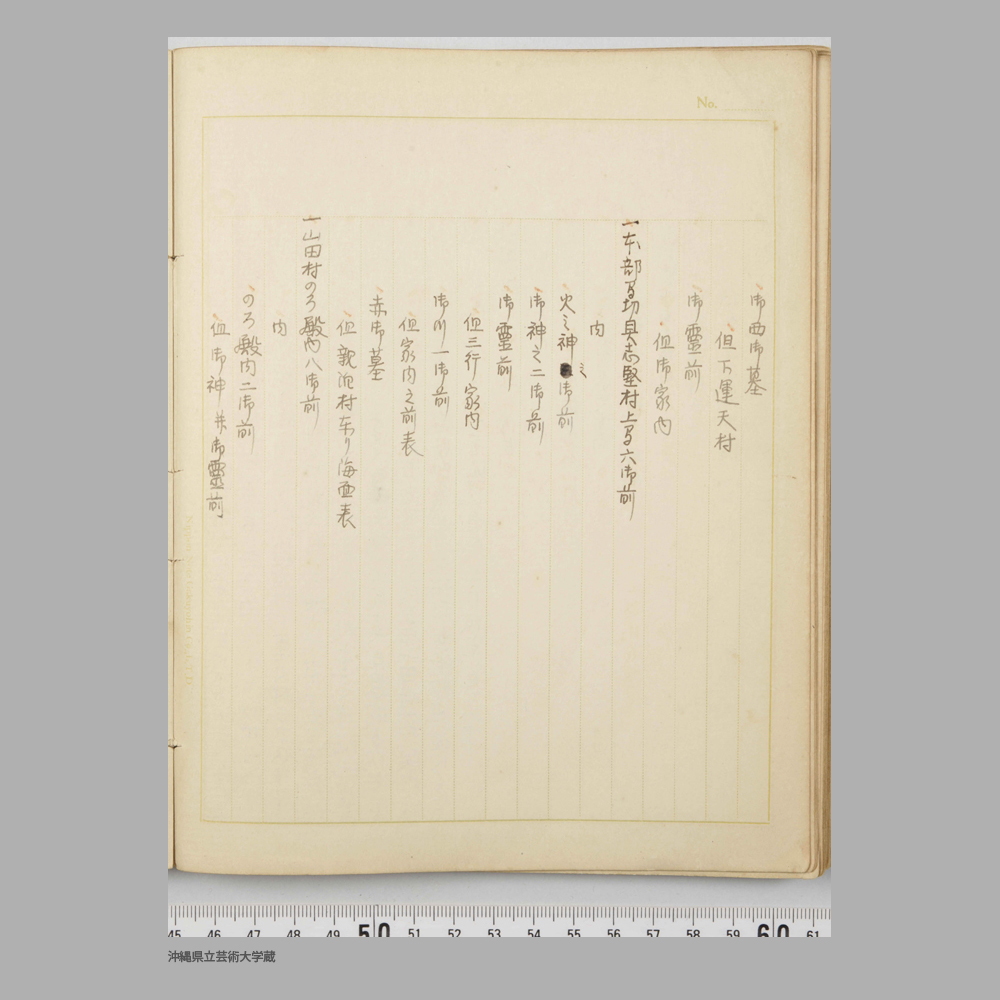 No.
御西御墓
但下運天村
御靈前
但御家内
一本部間切具志堅村上間六御前
内
火之神ミ御前
御神之二御前
御靈前
但三行家内
御川一御前
但家内之前表
赤御墓
但親泊村東り海面表
一山田村のろ殿内八御前
内
のろ殿内二御前
但御神并御靈前
45 46 47 48 49 50 51 52 53 54 55 56 57 58 59 60 61
沖縄県立芸術大学蔵